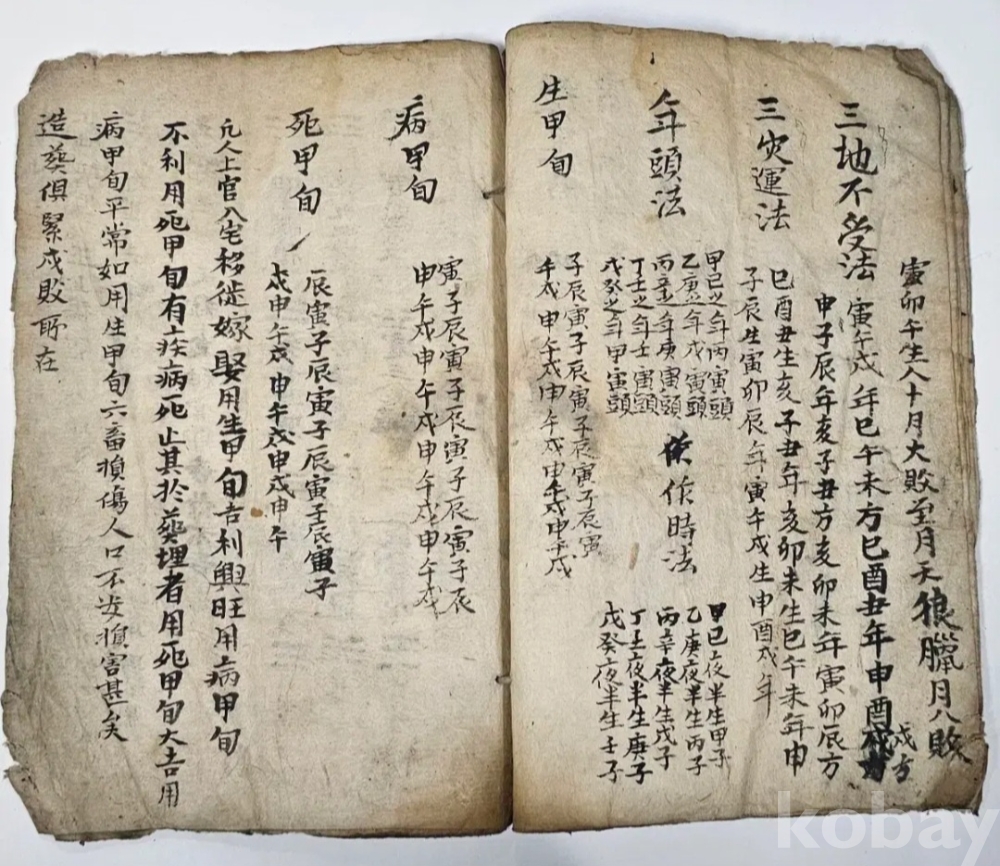 寅卯午生人十月大敗至月天狼臘月八敗
三地不受法
寅午戌年巳午未方巳酉丑年申酉戌方
戌方
申子辰年亥子丑方亥卯未年寅卯辰方
三灾運法
巳酉丑生亥子丑年亥卯未生巳午未年申
子辰生寅卯辰年寅午戌生申酉戌年
年頭法
甲己之年丙寅頭
乙庚之年戊寅頭
丙辛之年庚寅頭
丁壬之年壬寅頭
戊癸之年甲寅頭
作時法
甲己夜半生甲子
乙庚夜半生丙子
丙辛夜半生戊子
丁壬夜半生庚子
戊癸夜半生壬子
生甲旬
子辰寅子辰寅子辰寅子辰寅
午戌申午戌申午戌申午戌申午戌
病甲旬
寅子辰寅子辰寅子辰寅子辰
申午戌申午戌申午戌申午戌
死甲旬
辰寅子辰寅子辰寅子辰寅子
戌申午戌申午戌申戌申午
凡人上官入宅移徙嫁娶用生甲旬吉利興旺用病甲旬
不利用死甲旬有疾病死止其於葬埋者用死甲旬大吉用
病甲旬平常如用生甲旬六畜損傷人口不安損害甚矣
造葬俱緊成敗所在
kobay